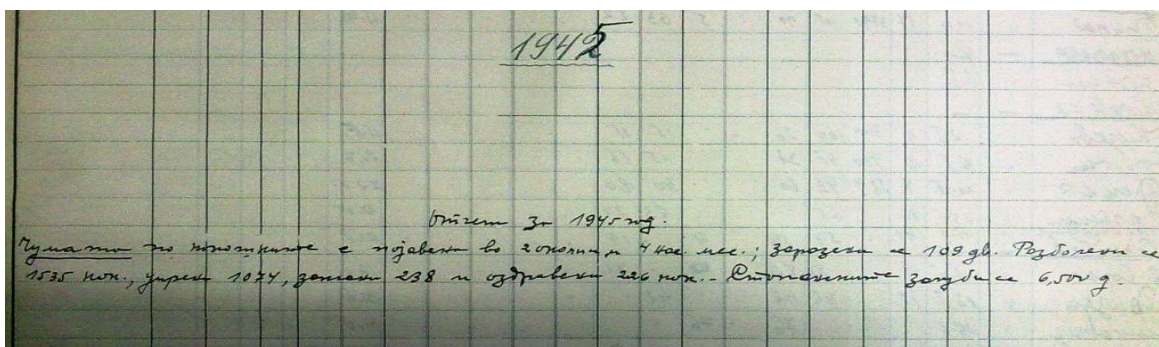 1945
Отчет за 1945 год.
Чумата по кокошките е појавена во 2 околии и 4 нас. мес.; заразени се 109 дв. Разболени се
1535 кок., умрени 1074, заклани 238 и оздравени 226 кок. - Стопанските загуби се 6,500 д.